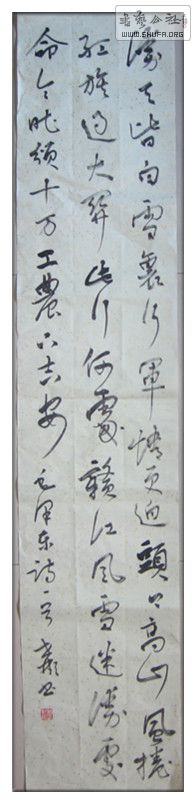 书艺公社
WWW.SHUFA.ORG
漫天皆白雪裏行軍情更迫頭上高山風捲
紅旗过大関此行何處贛江風雪迷漫處
命令昨頒十万工農下吉安 毛泽东詩一首